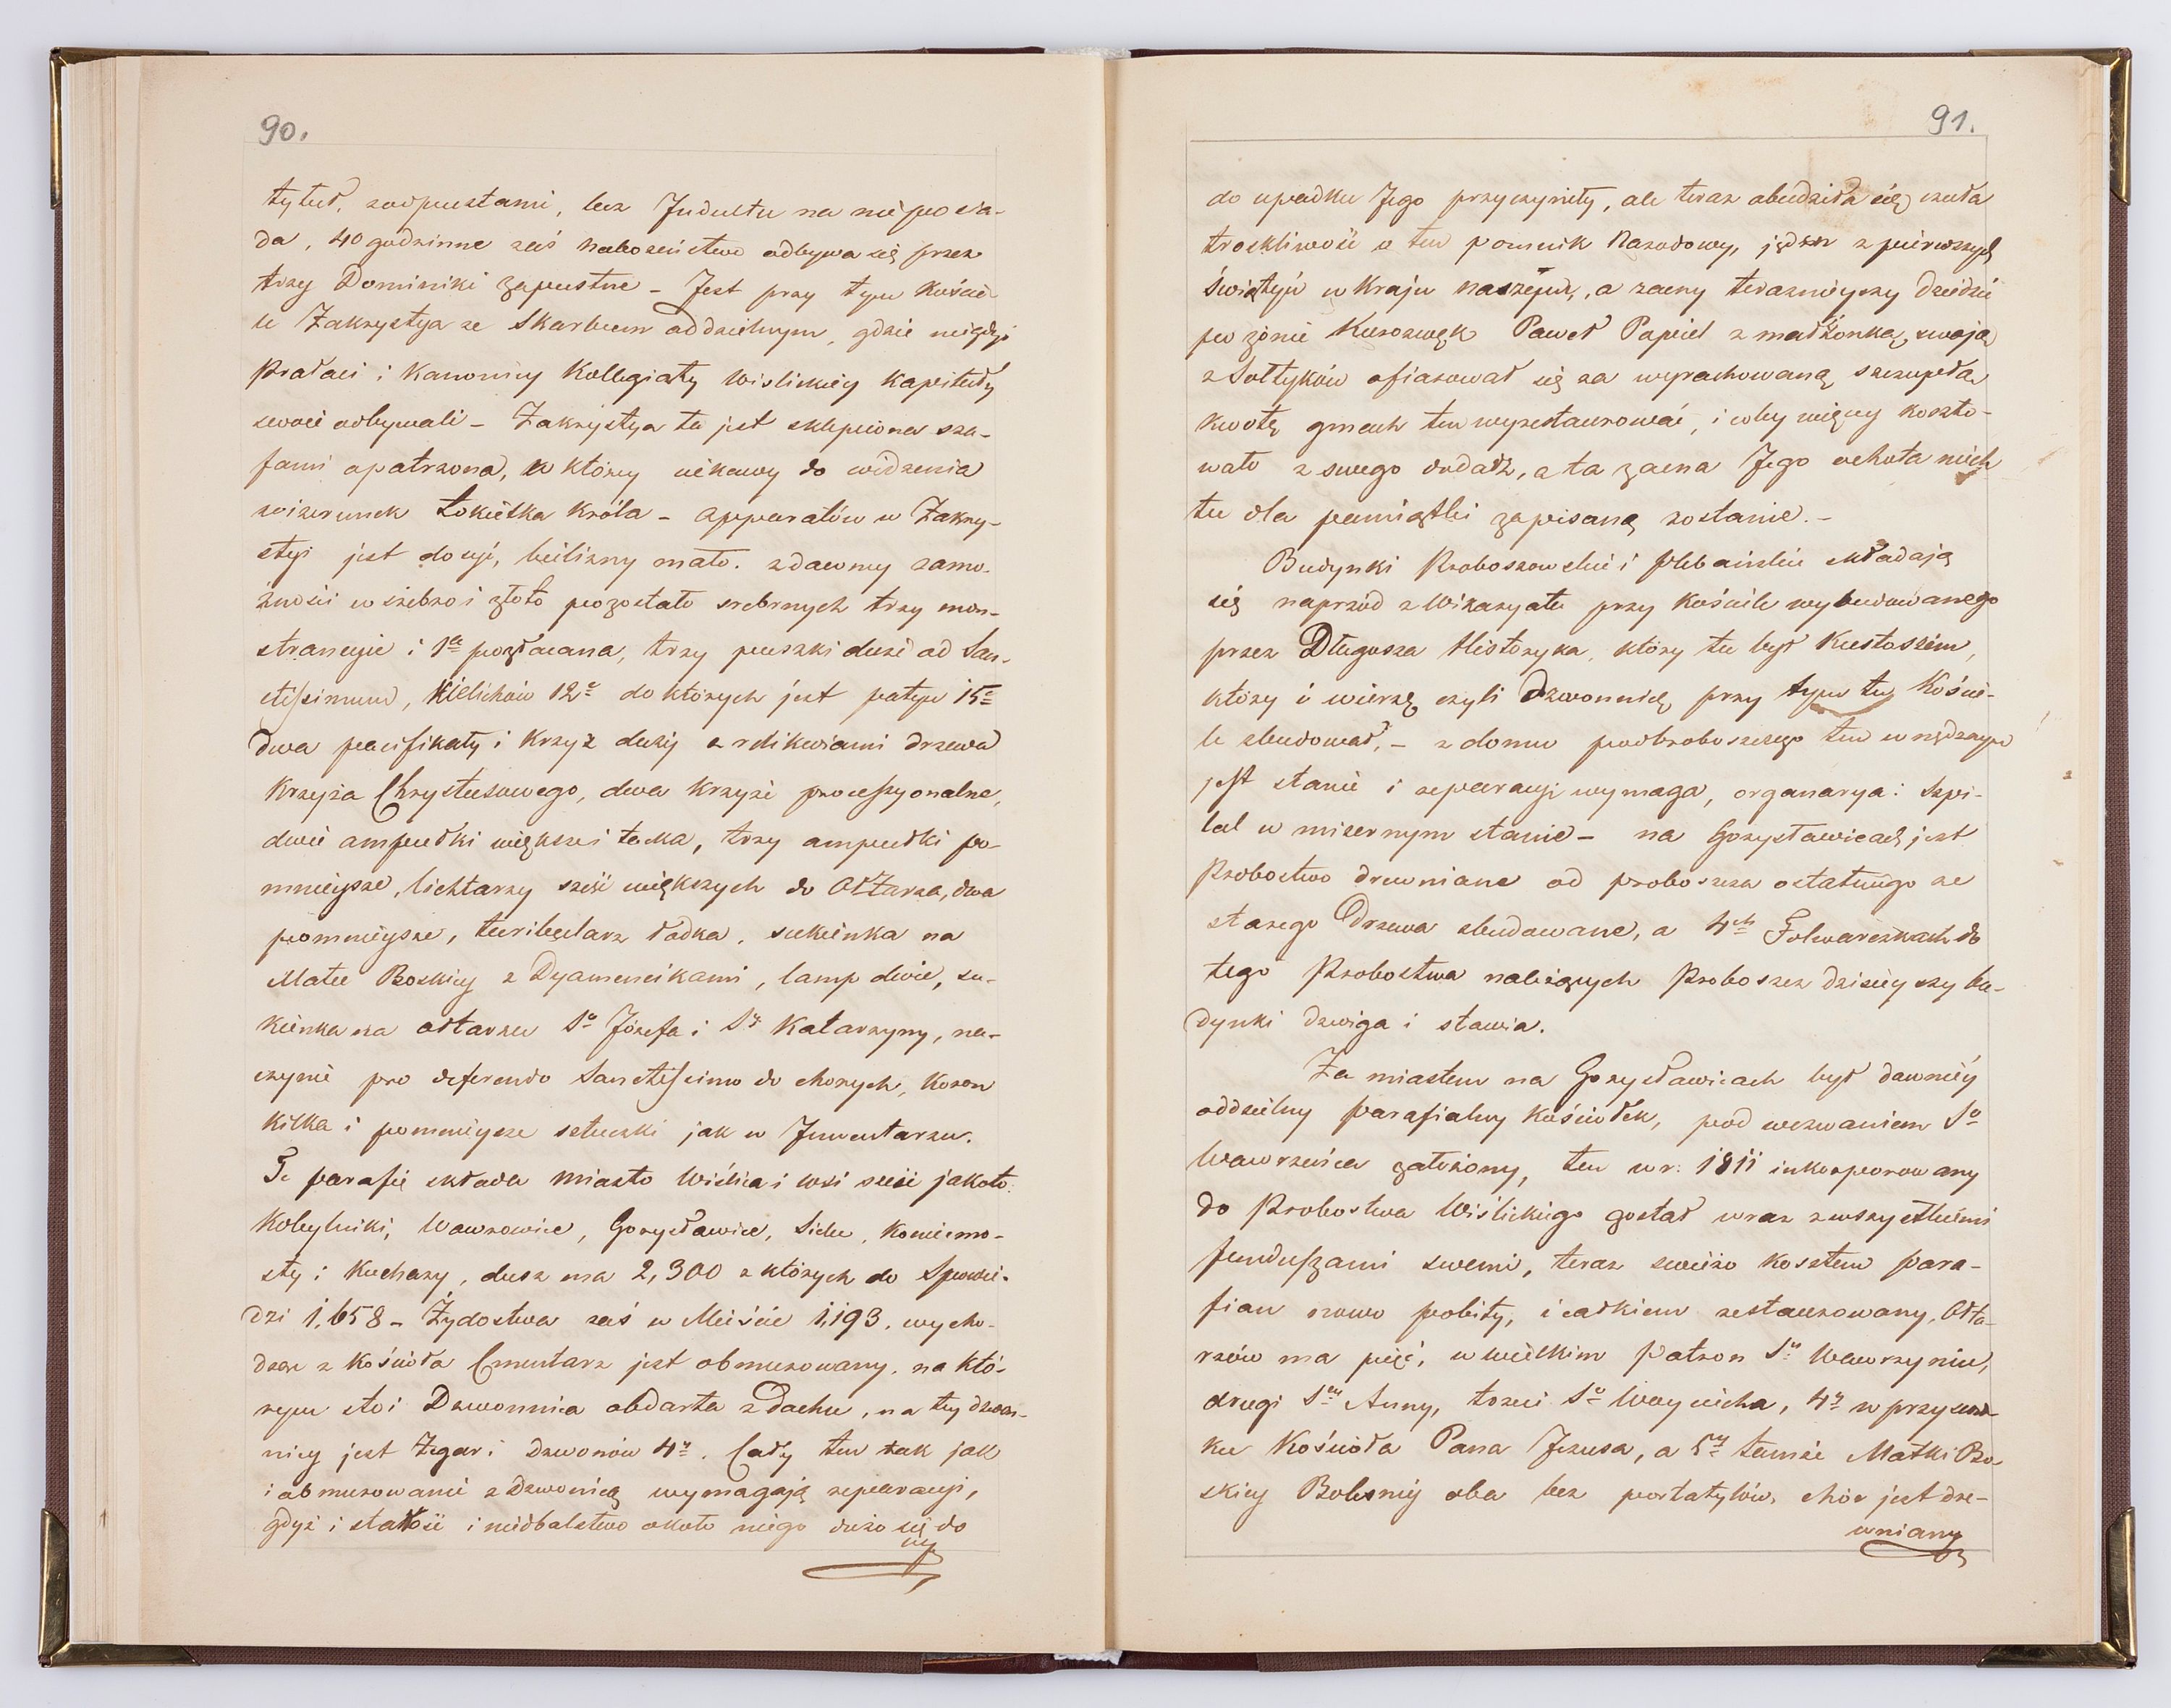 90.
tytuł, z odpustami, lecz Indultu na nie posia-
da, 40 godzinne zaś nabożeństwo odbywa się przez
trzy Dominiki zapustne - Jest przy tym Koście-
le Zakrystya ze Skarbcem oddzielnym, gdzie niegdyś
Prałaci i Kanonicy Kollegiaty Wislickiéy Kapituły
swoie odbywali - Zakrystya ta jest sklepiona sza-
fami opatrzona, w którey ciekawy do widzenia
wizerunek Łokietka Króla - apparatów w Zakry-
styi jest dosyć, bielizny mało. z dawney zamo-
żności w srebro i złoto pozostało srebrnych trzy mon-
strancyie i 1a pozłacana, trzy puszki duże ad San-
ctissimum, Kielichów 12e do których jest patyn 15e
dwa pacifikały i Krzyż duży z relikwiami drzewa
Krzyża Chrystusowego, dwa Krzyże processyonalne,
dwie ampułki większe i tacka, trzy ampułki po-
mnieysze, lichtarzy sześć większych do Ołtarza, dwa
pomnieysze, turibularz łodka, sukienka na
Matce Boskiey z Dyamencikami, lamp dwie, su-
kienka na ołtarzu So Józefa i Sy Katarzyny, na-
czynie pro deferendo Sanctissimo do chorych, Koron
Kilka i pomnieysze sztuczki jak w Inwentarzu.
Tę parafię składa Miasto Wiślica i wsi sześć jakoto:
Kobylniki, Wawrowice, Gorysławice, Sielec, Koniemo-
sty i Kuchary, dusz ma 2,300 z których do Spowie-
dzi 1,658 - Żydostwa zaś w Mieście 1,193. wycho-
dząc z Kościoła Cmentarz jest obmurowany, na któ-
rym stoi Dzwonnica obdarta z dachu, na tey dzwon-
nicy jest Zegar i dzwonów 4y. Cały ten tak jak
i obmurowanie z Dzwonicą wymagają reparacyi,
gdyż i starość i niedbalstwo około niego dużo się do
91.
do upadku Jego przyczyniły, ale teraz obudziła się czuła
troskliwość o ten pomnik Narodowy, jeden z pierwszych
świątyń w Kraju naszym, a zacny teraznieyszy Dziedzic
po żonie Kurozwęk Paweł Popiel z małżonką swoją
z Sołtyków ofiarował się za wyrachowaną szczupłą
kwotę gmach ten wyrestaurować, i coby więcey koszto-
wało z swego dodadz, a ta zacna Jego ochota niech
tu dla pamiątki zapisaną zostanie. -
Budynki Proboszowskie i plebańskie składają
się naprzód z Wikaryatu przy Kościele wybudowanego
przez Długosza Historyka, który tu był Kustoszem,
który i wierzę czyli Dzwonnicę przy tym tuy Koście-
le zbudował, - z domu podproboszczego ten w nędznym
jest stanie i reparacyi wymaga, organarya i Szpi-
tal w mizernym stanie - na Gorysławicach jest
Probostwo drewniane od proboszcza ostatniego ze
starego Drzewa zbudowane, a 4ch Folwarczkach do
tego Probostwa należących Proboszcz dzisieyszy bu-
dynki dzwiga i stawia.
Za miastem na Gorysławicach był dawniéy
oddzielny parafialny Kościołek, pod wezwaniem So
Wawrzeńca założony, ten w r: 1811 inkorporowany
do Probostwa Wiślickiego został wraz z wszystkiemi
funduszami swemi, teraz swieżo kosztem para-
fian nowo pobity, i całkiem restaurowany, Ołta-
rzów ma pięć, w wielkim Patron Sy Wawrzyniec,
drugi Sey Anny, trzeci So Woyciecha, 4y w przysion-
ku Kościoła Pana Jezusa, a 5y tamże Matki Bo-
skiey Bolesnéy oba bez portatylów, chór jest dre-
wniany